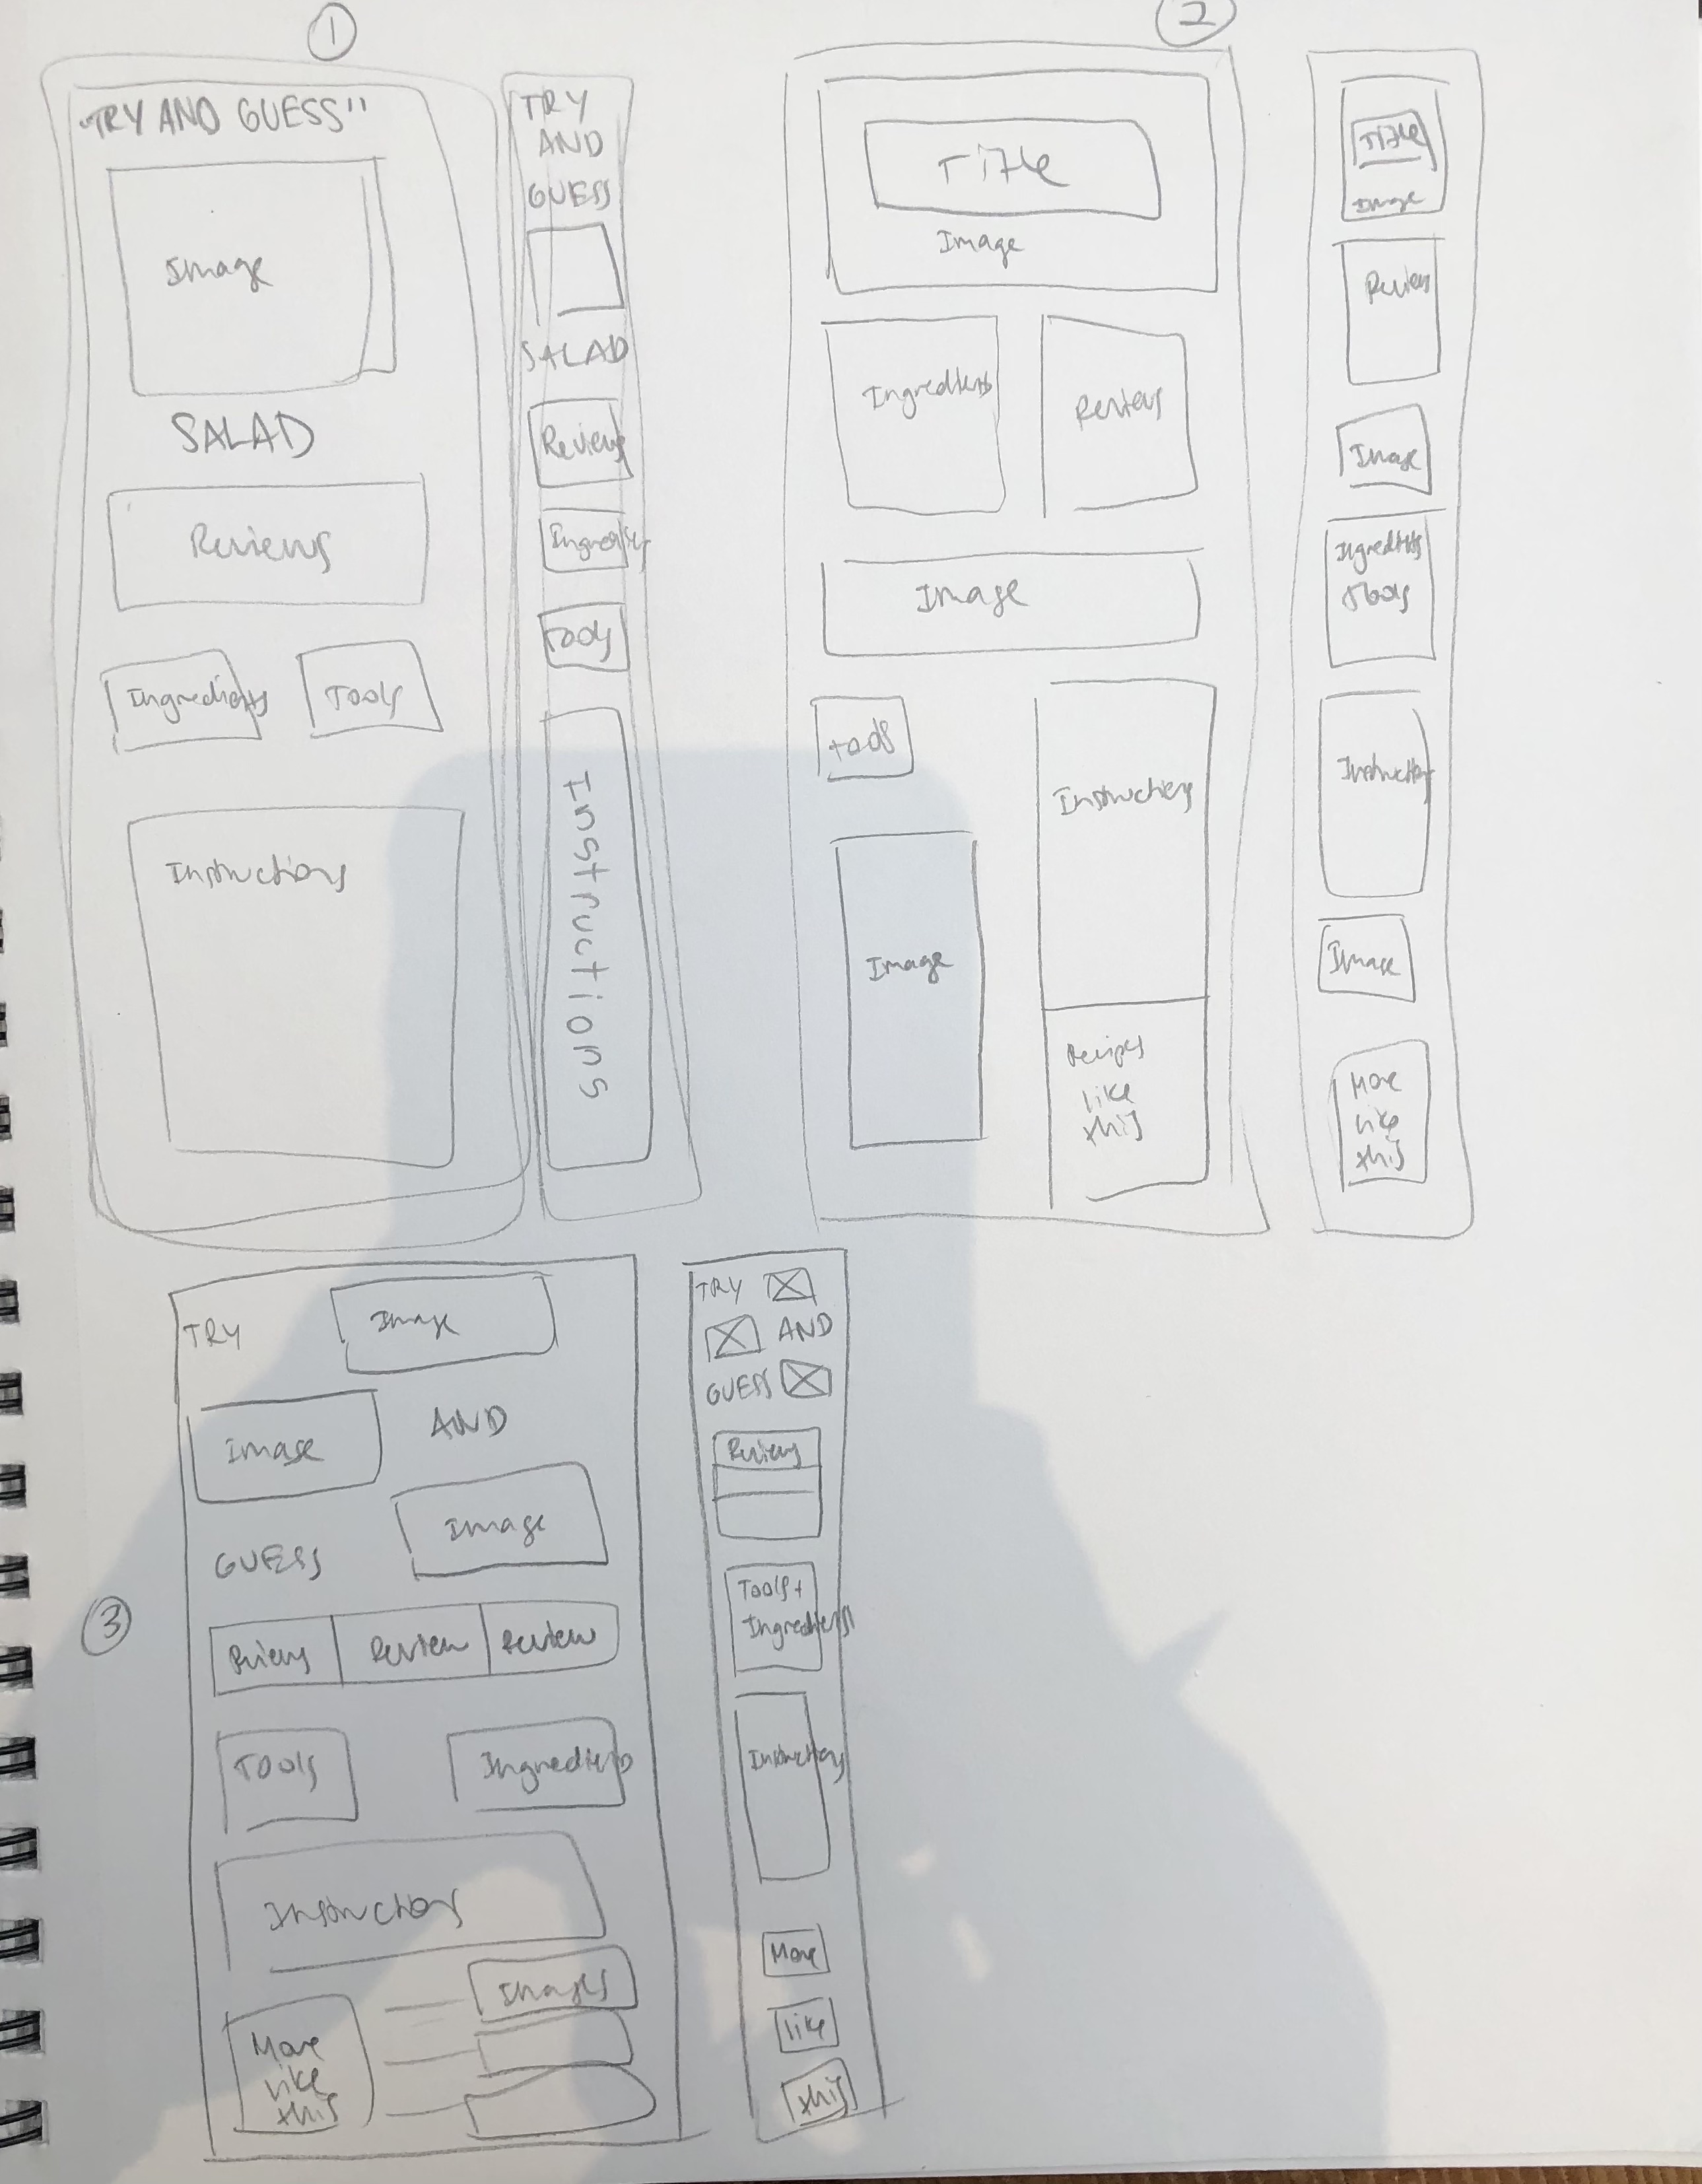 1
"TRY AND GUESS"
Image
SALAD
Reviews
Ingredients
Tools
Instructions
TRY
AND
GUESS
SALAD
Reviews
Ingredients
Tools
Instructions
2
Title
Image
Ingredients
Reviews
Image
tools
Instructions
Image
Recipes
like
this
Title
Image
Reviews
Image
Ingredients
+tools
Instructions
Image
More
like
this
3
TRY
Image
Image
AND
Image
GUESS
Reviews
Review
Review
Tools
Ingredients
Instructions
Images
More
like
this
TRY
AND
GUESS
Reviews
Tools +
Ingredients
Instructions
More
like
this